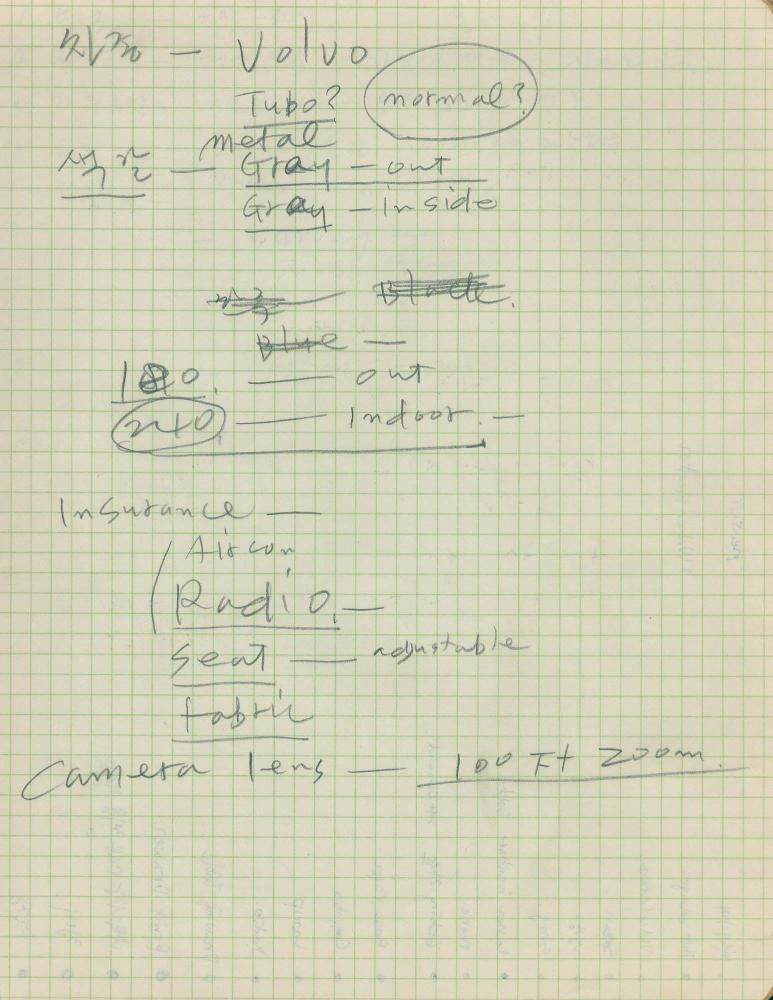 차종 — Volvo
Tubo? normal?
metal
색깔 — Gray — out
Gray — inside
Blue —
180. — out
240. — Indoor. —
Insurance —
Aircon
Radio. —
Seat — adjustable
Fabric
Camera lens — 100 Ft Zoom.